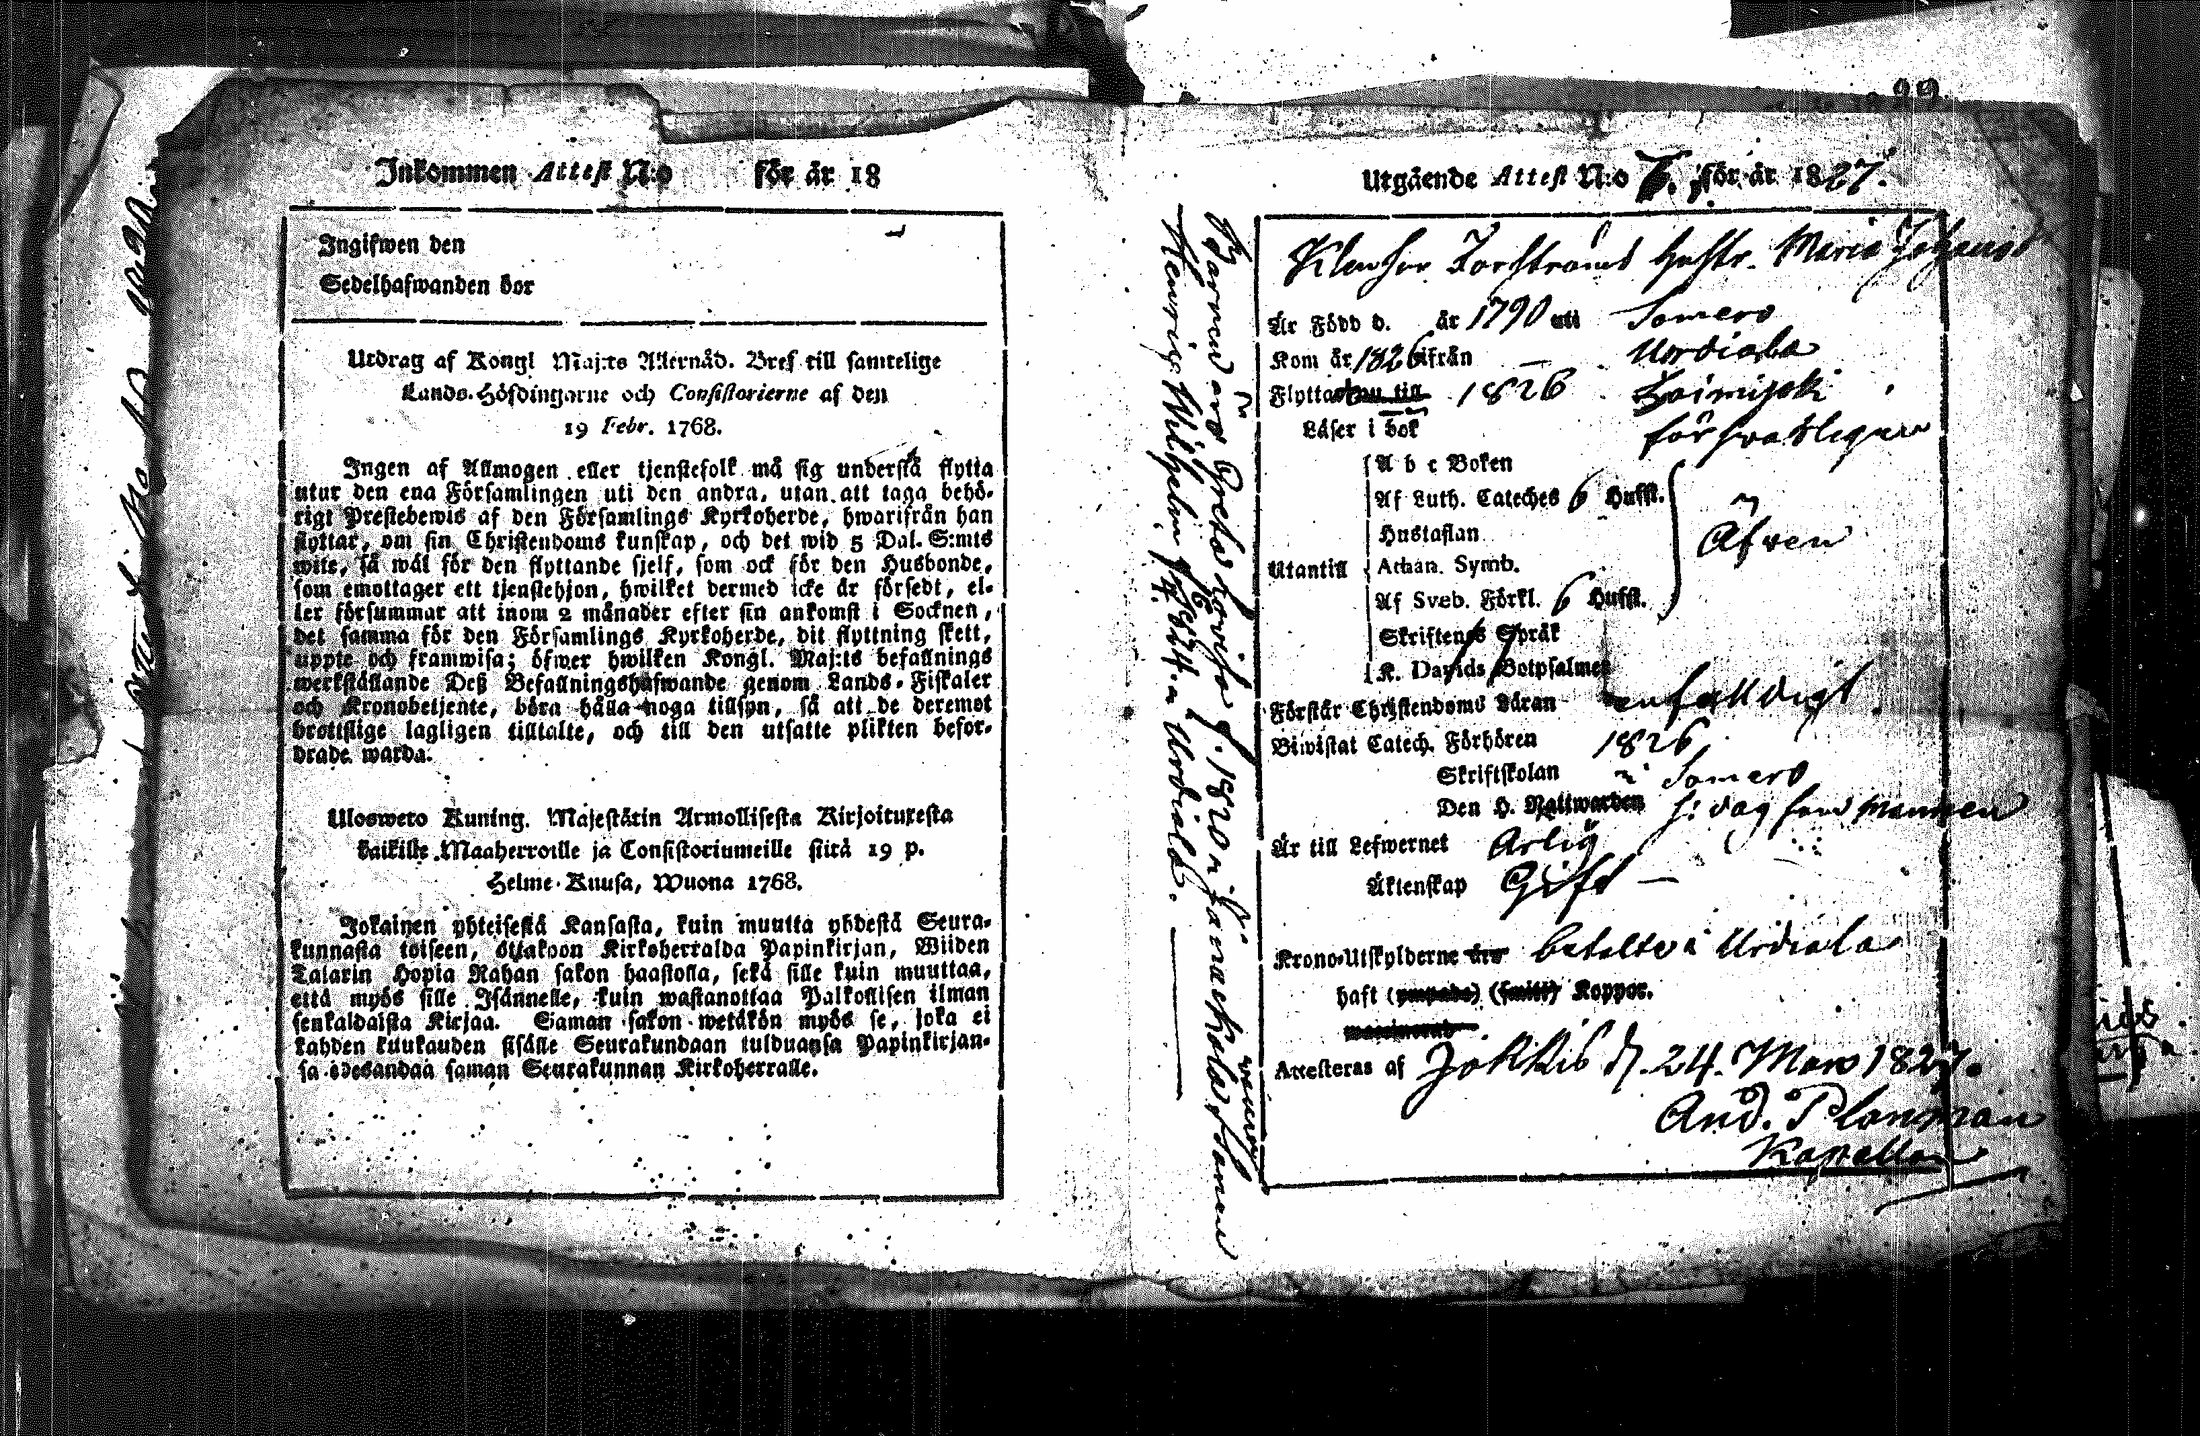 Inkommen Attest N:o för år 18
Ingifwen den
Sedelhafwanden bor
Utdrag af Kongl Maj:ts Allernåd. Bref till samtelige
Lands-Höfdingarne och Consistorierne af den
19 Febr. 1768.
Ingen af Allmogen eller tjenstefolk må sig understå flytta
utur den ena Församlingen uti den andra, utan att taga behö-
rigt Prestebewis af den Församlings Kyrkoherde, hwarifrån han
flyttar, om sin Christendoms kunskap, och det wid 5 Dal. S:mts
wite, så wäl för den flyttande sjelf, som ock för den Husbonde,
som emottager ett tjenstehjon, hwilket dermed icke är försedt, el-
ler försummar att inom 2 månader efter sin ankomst i Socknen,
det samma för den Församlings Kyrkoherde, dit flyttning skett,
uppte och framwisa; öfwer hwilken Kongl. Maj:ts befallnings
werkställande Deß Befallningshafwande genom Lands-Fiskaler
och Kronobetjente, böra hålla noga tillsyn, så att de deremot
brottslige lagligen tilltalte, och till den utsatte plikten befor-
drade warda.
Ulosweto Kuning. Majestätin Armollisesta Kirjoituxesta
kaikille Maaherroille ja Consistoriumeille siitä 19 p.
Helme-Kuusa, Wuona 1768.
Jokainen yhteisestä Kansasta, kuin muutta yhdestä Seura-
kunnasta toiseen, ottakoon Kirkoherralda Papinkirjan, Wiiden
Talarin Hopia Rahan sakon haastolla, sekä sille kuin muuttaa,
että myös sille Isännelle, kuin wastanottaa Palkollisen ilman
senkaldaista Kirjaa. Saman sakon wetäkön myös se, joka ei
kahden kuukauden sisälle Seurakundaan tulduansa Papinkirjan-
sa edesandaa saman Seurakunnan Kirkoherralle.
Utgående Attest N:o 7. för år 1827.
Hustr. Maria Johansd
Är Född d. år 1790 uti Somero
Kom år 1826 ifrån — Urdiala
Flyttar nu till 1826 Loimijoki
Läser i bok försvarligen
A b c Boken
Af Luth. Cateches 6 Hufst.
Hustaflan Äfven
Utantill Athan. Symb.
Af Sveb. Förkl. 6 Hufst.
Skriftenes Språk
K. Davids Botpsalmer
Förstår Christendoms Läran enfalldigt
Biwistat Catech. Förhören 1826
Skriftskolan i Somero
Den H. Nattwarden s: dag som mannen
Är till Lefwernet Ärlig
Äktenskap Gift —
Krono-Utskylderne äro betalte i Urdiala
haft Koppor.
Attesteras af Jokkis d. 24. Mars 1827.
And. Planman
Kapellan
Barnen äro Greta Lovisa f. 1820
Henric Wilhelm f. Urdiala.